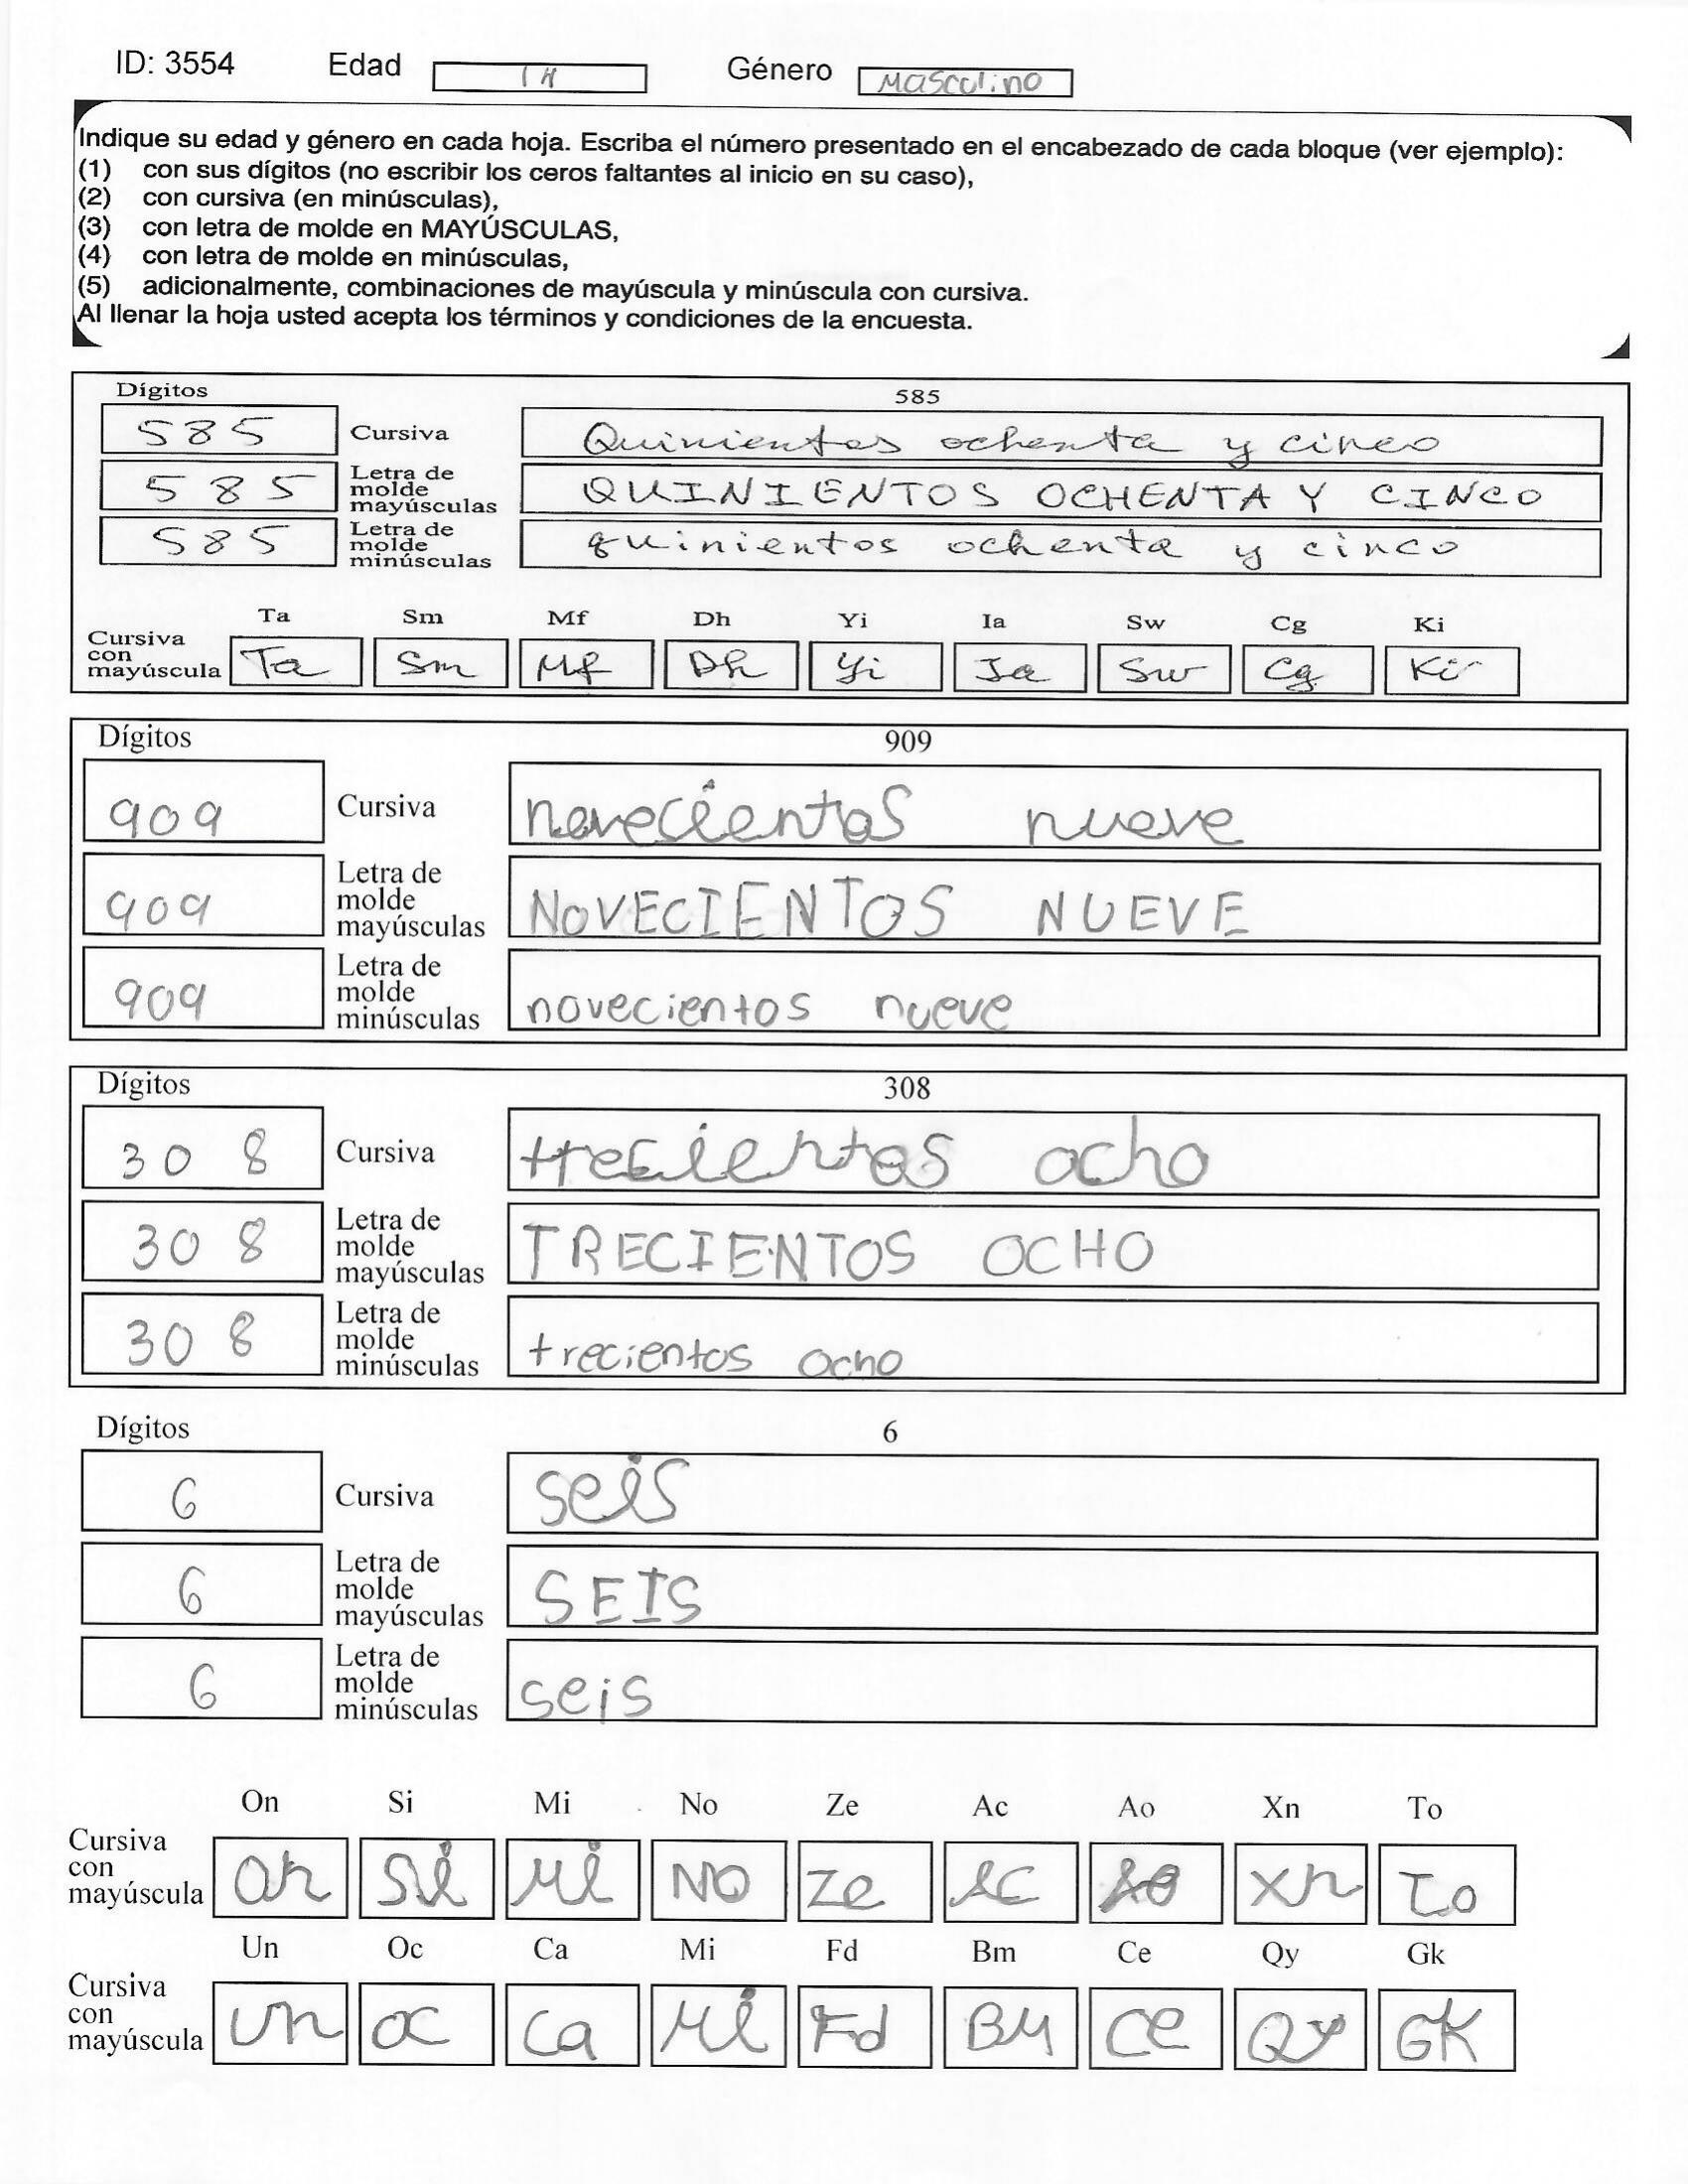 ID: 3554 Edad 14 Género Masculino
Indique su edad y género en cada hoja. Escriba el número presentado en el encabezado de cada bloque (ver ejemplo):
(1) con sus dígitos (no escribir los ceros faltantes al inicio en su caso),
(2) con cursiva (en minúsculas),
(3) con letra de molde en MAYÚSCULAS,
(4) con letra de molde en minúsculas,
(5) adicionalmente, combinaciones de mayúscula y minúscula con cursiva.
Al llenar la hoja usted acepta los términos y condiciones de la encuesta.
Dígitos 585
585 Cursiva Quinientos ochenta y cinco
585 Letra de molde mayúsculas QUINIENTOS OCHENTA Y CINCO
585 Letra de molde minúsculas quinientos ochenta y cinco
Ta Sm Mf Dh Yi Ia Sw Cg Ki
Cursiva con mayúscula Ta Sm Mf Dh Yi Ia Sw Cg Ki
Dígitos 909
909 Cursiva novecientos nueve
909 Letra de molde mayúsculas NOVECIENTOS NUEVE
909 Letra de molde minúsculas novecientos nueve
Dígitos 308
308 Cursiva trecientos ocho
308 Letra de molde mayúsculas TRECIENTOS OCHO
308 Letra de molde minúsculas trecientos ocho
Dígitos 6
6 Cursiva seis
6 Letra de molde mayúsculas SEIS
6 Letra de molde minúsculas seis
On Si Mi No Ze Ac Ao Xn To
Cursiva con mayúscula On Si Mi NO Ze Ac Ao Xn To
Un Oc Ca Mi Fd Bm Ce Qy Gk
Cursiva con mayúscula Un Oc Ca Mi Fd BM Ce Qy GK